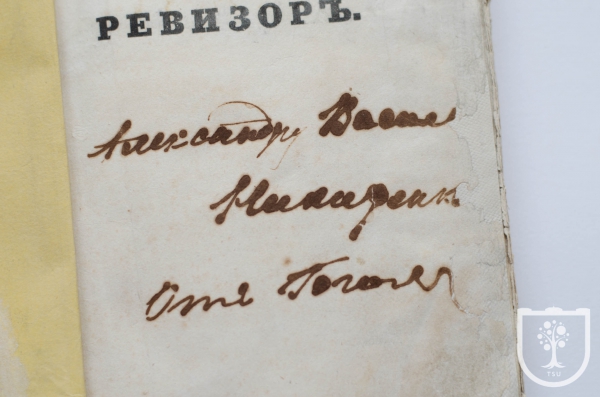 РЕВИЗОРЪ.
Александру Василе
Никитенк
Отъ Гоголя
TSU